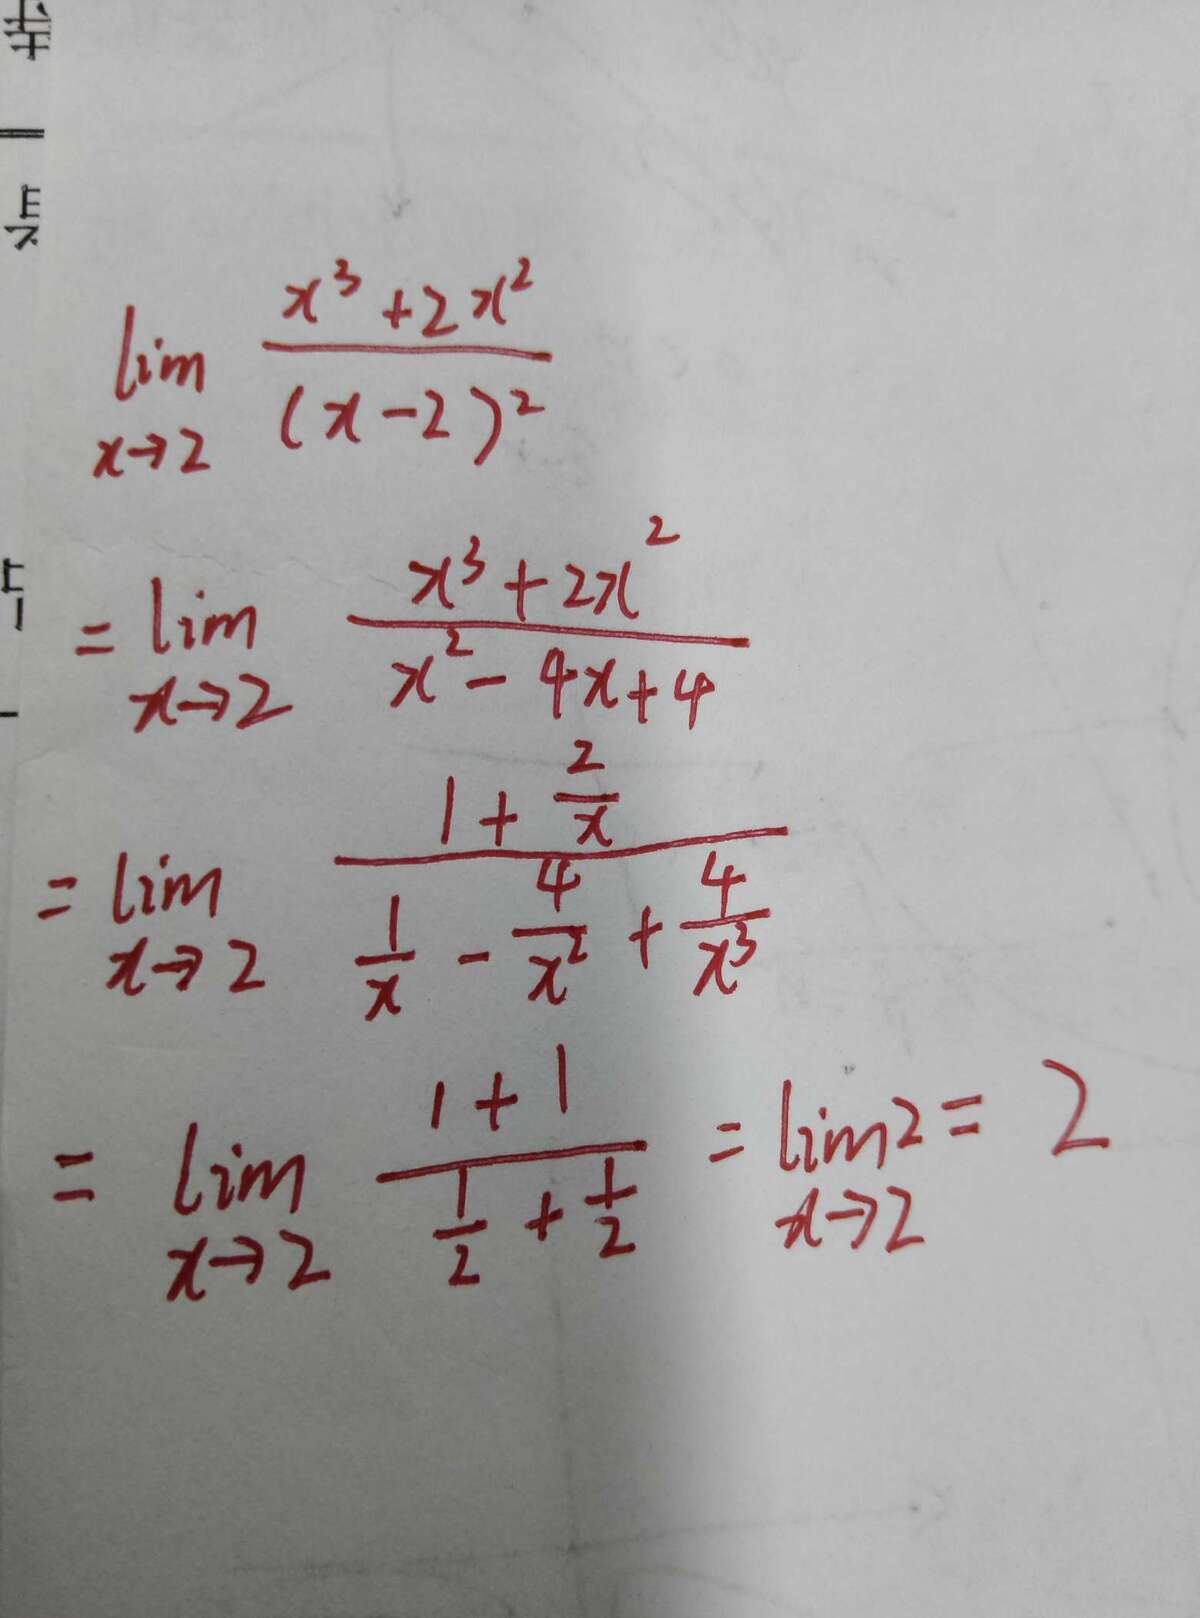 lim x→2 (x³+2x²)/((x-2)²)
= lim x→2 (x³+2x²)/(x²-4x+4)
= lim x→2 (1+2/x)/(1/x - 4/x² + 4/x³)
= lim x→2 (1+1)/(1/2+1/2) = lim x→2 2 = 2